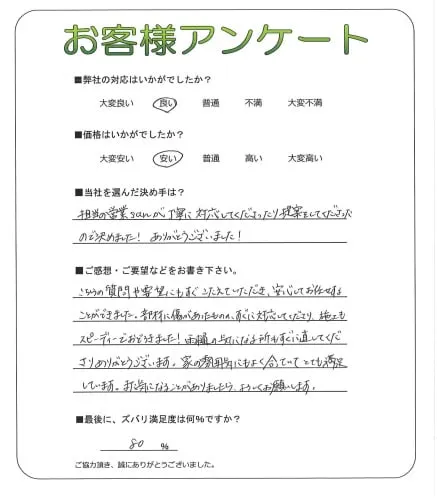 お客様アンケート
■弊社の対応はいかがでしたか？
大変良い 良い 普通 不満 大変不満
■価格はいかがでしたか？
大変安い 安い 普通 高い 大変高い
■当社を選んだ決め手は？
担当の営業sanが丁寧に対応してくださったり提案をしてくださった
ので決めました! ありがとうございました!
■ご感想・ご要望などをお書き下さい。
こちらの質問や要望にもすぐこたえていただき、安心してお任せする
ことができました。部材に傷があたものの、すぐに対応してくださり、施工も
スピーディーでおどろきました! 雨樋の気になる所もすぐに直してくだ
さりありがとうございます。家の雰囲気にもよく合っていてとても満足
しています。また気になることがありましたら、よろしくお願いします。
■最後に、ズバリ満足度は何%ですか？
80 %
ご協力頂き、誠にありがとうございました。